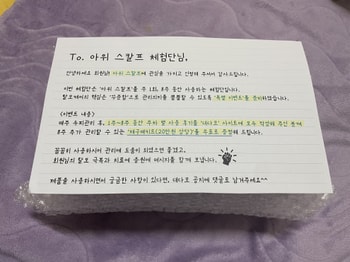 To. 아위 스칼프 체험단님,
안녕하세요 회원님! 아위 스칼프에 관심을 가지고 신청해 주셔서 감사드립니다.
이번 체험단은 '아위 스칼프'를 주 1회, 8주 동안 사용하는 체험단입니다.
탈모케어의 핵심은 '꾸준함'으로 관리의지를 뿜뿜할 수 있도록 '특별 이벤트'를 준비하였습니다.
<이벤트 내용>
매주 수치관리 후, 1주~8주 동안 주차 별 사용 후기를 '대다모' 사이트에 모두 작성해 주신 분께
8주 추가 관리할 수 있는 '재구매키트(20만원 상당)'를 무료로 증정해 드립니다.
꼼꼼히 사용하시어 관리에 도움이 되었으면 좋겠고,
회원님의 탈모 극복과 치료에 응원에 메시지를 함께 보냅니다.
제품을 사용하시면서 궁금한 사항이 있다면, 대다모 공지에 댓글로 남겨주세요^^